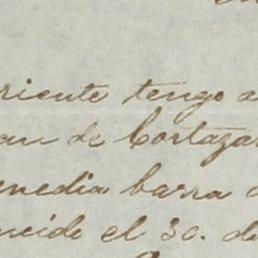 riente tengo a
an de Cortazar
enedia barra
ncido el 30. de